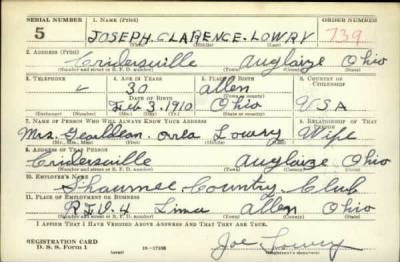 SERIAL NUMBER 1. NAME (Print) ORDER NUMBER
5 JOSEPH CLARENCE LOWRY 739
(First) (Middle) (Last)
2. ADDRESS (Print)
Cridersville Auglaize Ohio
(Number and street or R. F. D. number) (Town) (County) (State)
3. TELEPHONE 4. AGE IN YEARS 5. PLACE OF BIRTH 6. COUNTRY OF CITIZENSHIP
30 Allen
DATE OF BIRTH
Feb 3, 1910 Ohio USA
7. NAME OF PERSON WHO WILL ALWAYS KNOW YOUR ADDRESS 8. RELATIONSHIP OF THAT PERSON
Mrs. Orla Lowry Wife
(Mr., Mrs., Miss) (First) (Middle) (Last)
9. ADDRESS OF THAT PERSON
Cridersville Auglaize Ohio
(Number and street or R. F. D. number) (Town) (County) (State)
10. EMPLOYER'S NAME
Shawnee Country Club
11. PLACE OF EMPLOYMENT OR BUSINESS
R.F.D. 4 Lima Allen Ohio
(Number and street or R. F. D. number) (Town) (County) (State)
I AFFIRM THAT I HAVE VERIFIED ABOVE ANSWERS AND THAT THEY ARE TRUE.
REGISTRATION CARD
D. S. S. Form 1 16—17105
Joe Lowry